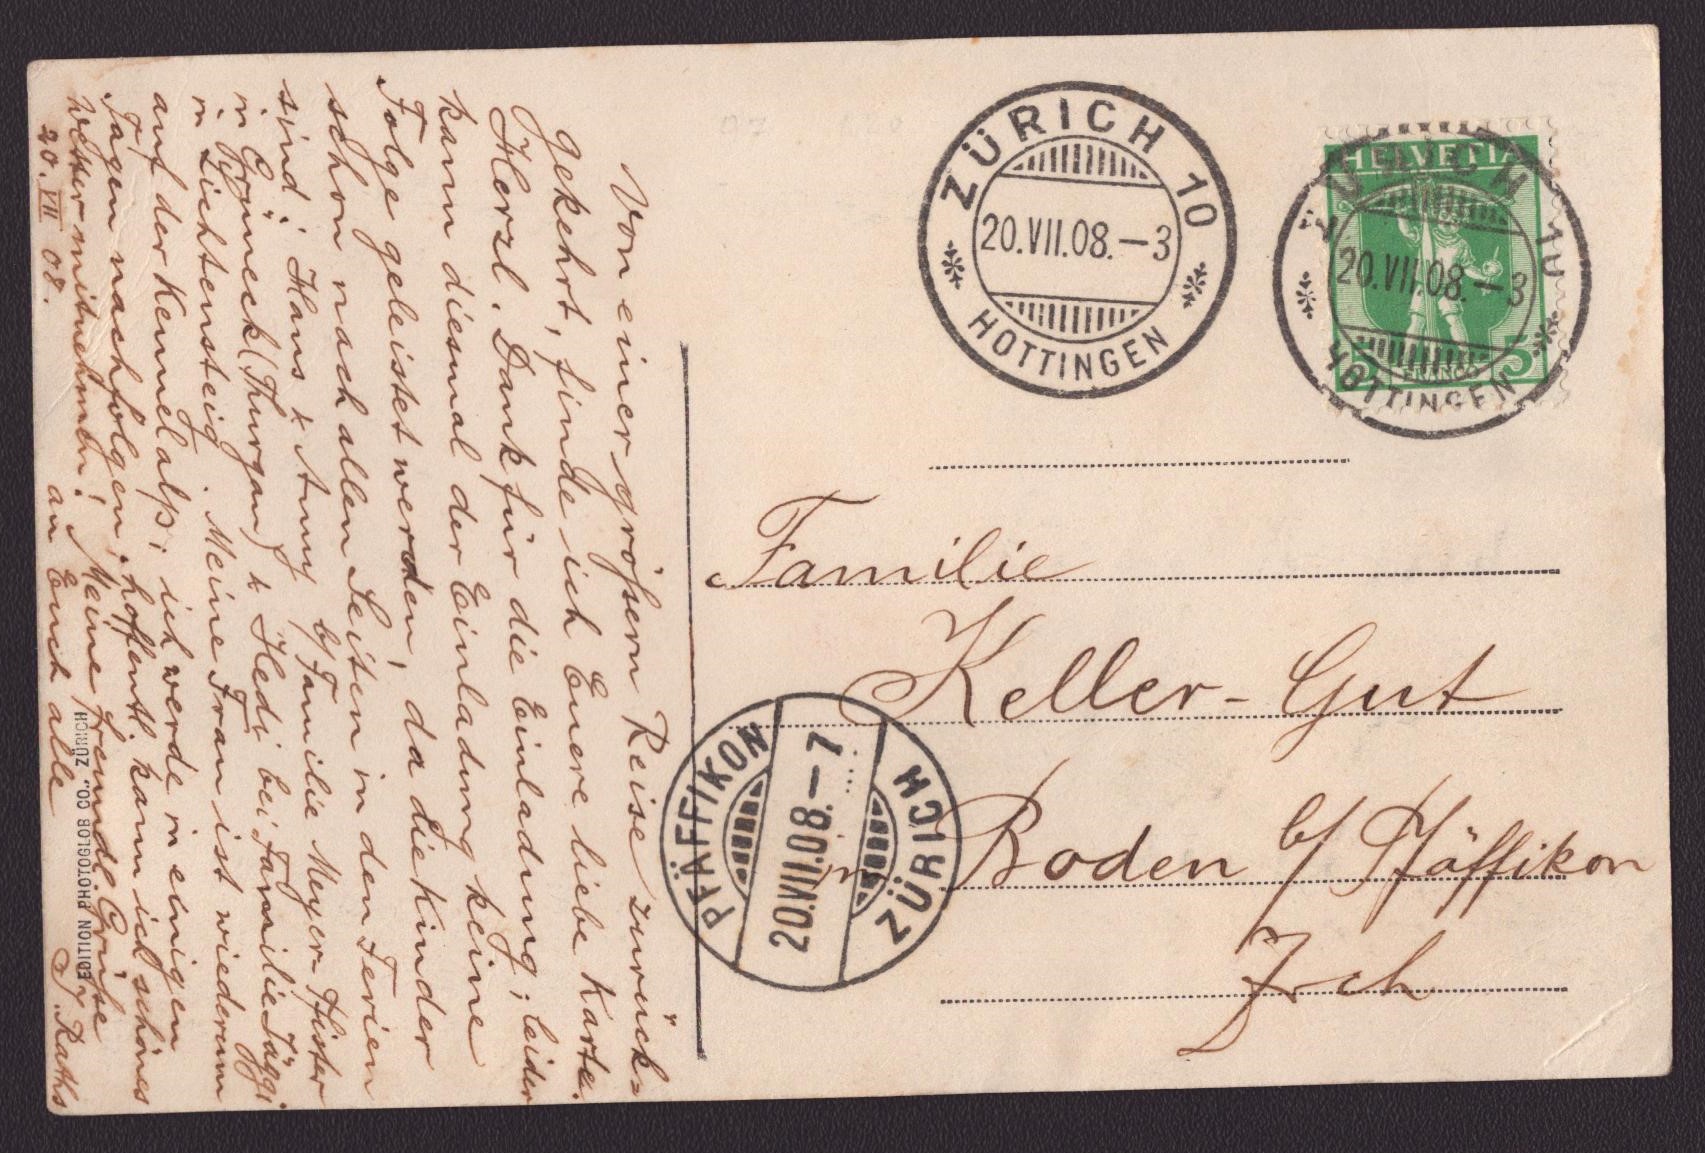 Von einer größern Reise zurück=
gekehrt, finde ich Euere liebe Karte.
Herzl. Dank für die Einladung; leider
kann diesmal der Einladung keine
Folge geleistet werden, da die Kinder
schon nach allen Seiten in den Ferien
sind: Hans & Anny b/Familie Meyer-Pfister
in Egnneck (Thurgau) & Hedi bei Familie Jäggi
in Lichtensteig. Meine Frau ist wiederum
auf der Kennelalp; ich werde in einigen
Tagen nachfolgen, hoffentl. kann ich schönes
Wetter mitnehmen! Meine freundl. Grüße
20. VII 08. an Euch alle
J. Raths
EDITION PHOTOGLOB CO., ZÜRICH
ZÜRICH 10
20.VII.08.–3
HOTTINGEN
ZÜRICH 10
20.VII.08.–3
HOTTINGEN
HELVETIA
FRANCO
5
Familie
Keller-Gut
in Boden b/Pfäffikon
Zch
PFÄFFIKON
20.VII.08.–7
ZÜRICH